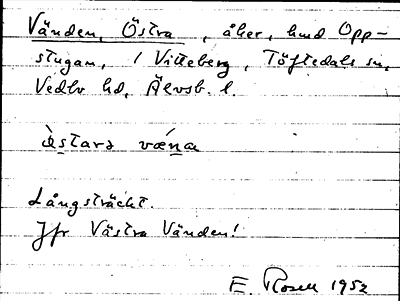 Vänden, Östra, åker, hmd Opp-
stugan, 1 Vitteberg, Töftedals sn,
Vedbo hd, Älvsb. l.
Långsträckt.
Jfr Västra Vänden!
E. Rosell 1952